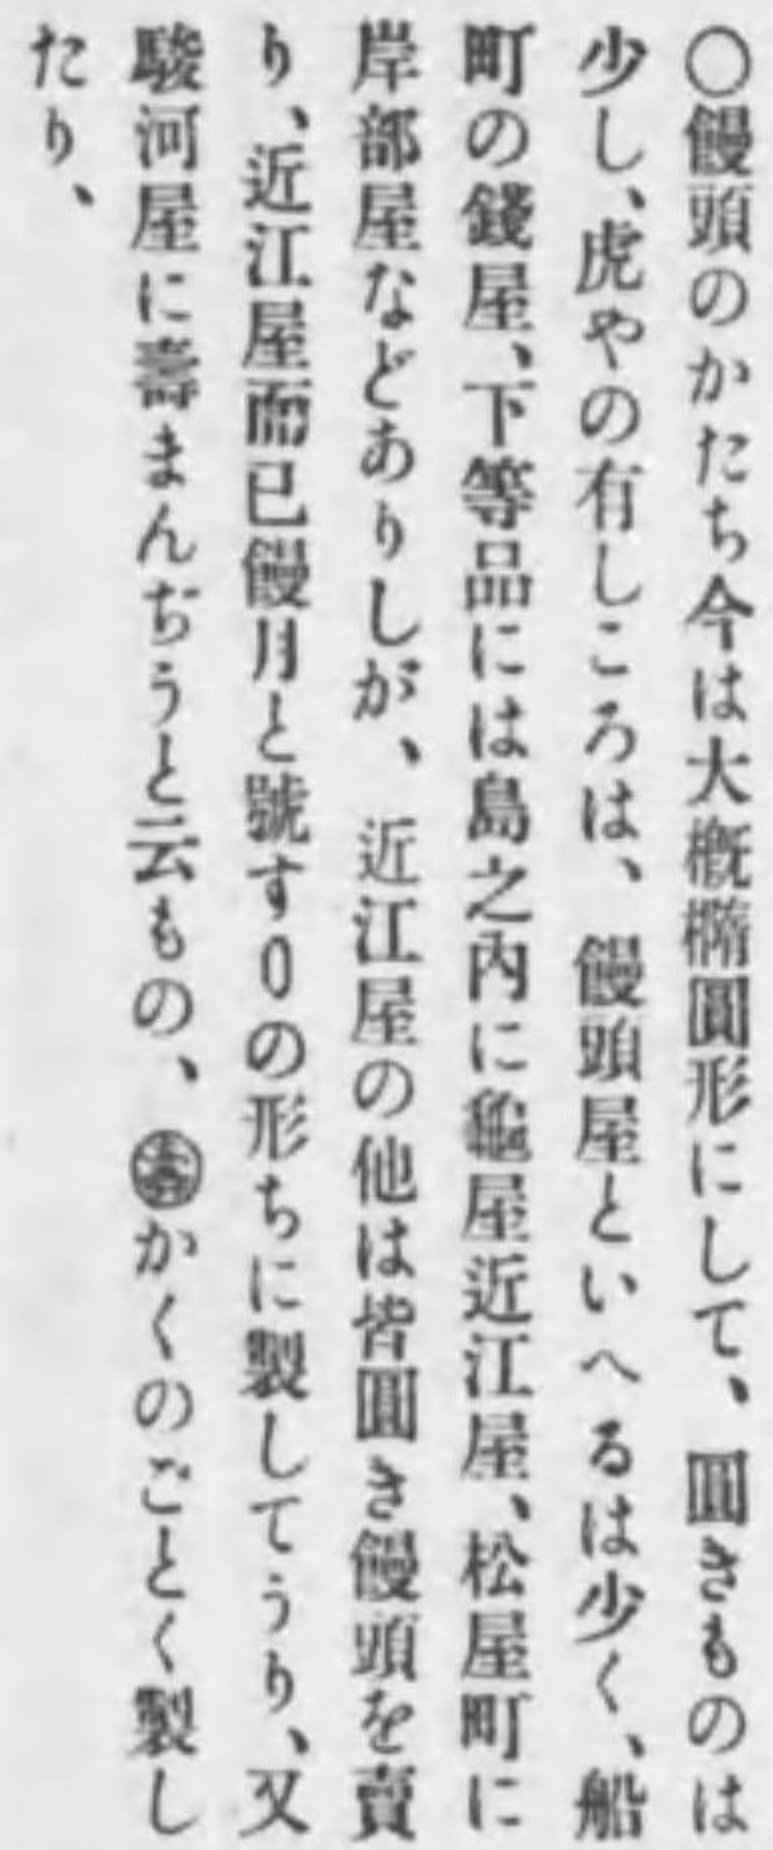 〇饅頭のかたち今は大槪橢圓形にして、圓きものは
少し、虎やの有しころは、饅頭屋といへるは少く、船
町の錢屋、下等品には島之內に龜屋近江屋、松屋町に
岸部屋などありしが、近江屋の他は皆圓き饅頭を賣
り、近江屋而已饅月と號す0の形ちに製してうり、又
駿河屋に壽まんぢうと云もの、㊎かくのごとく製し
たり、